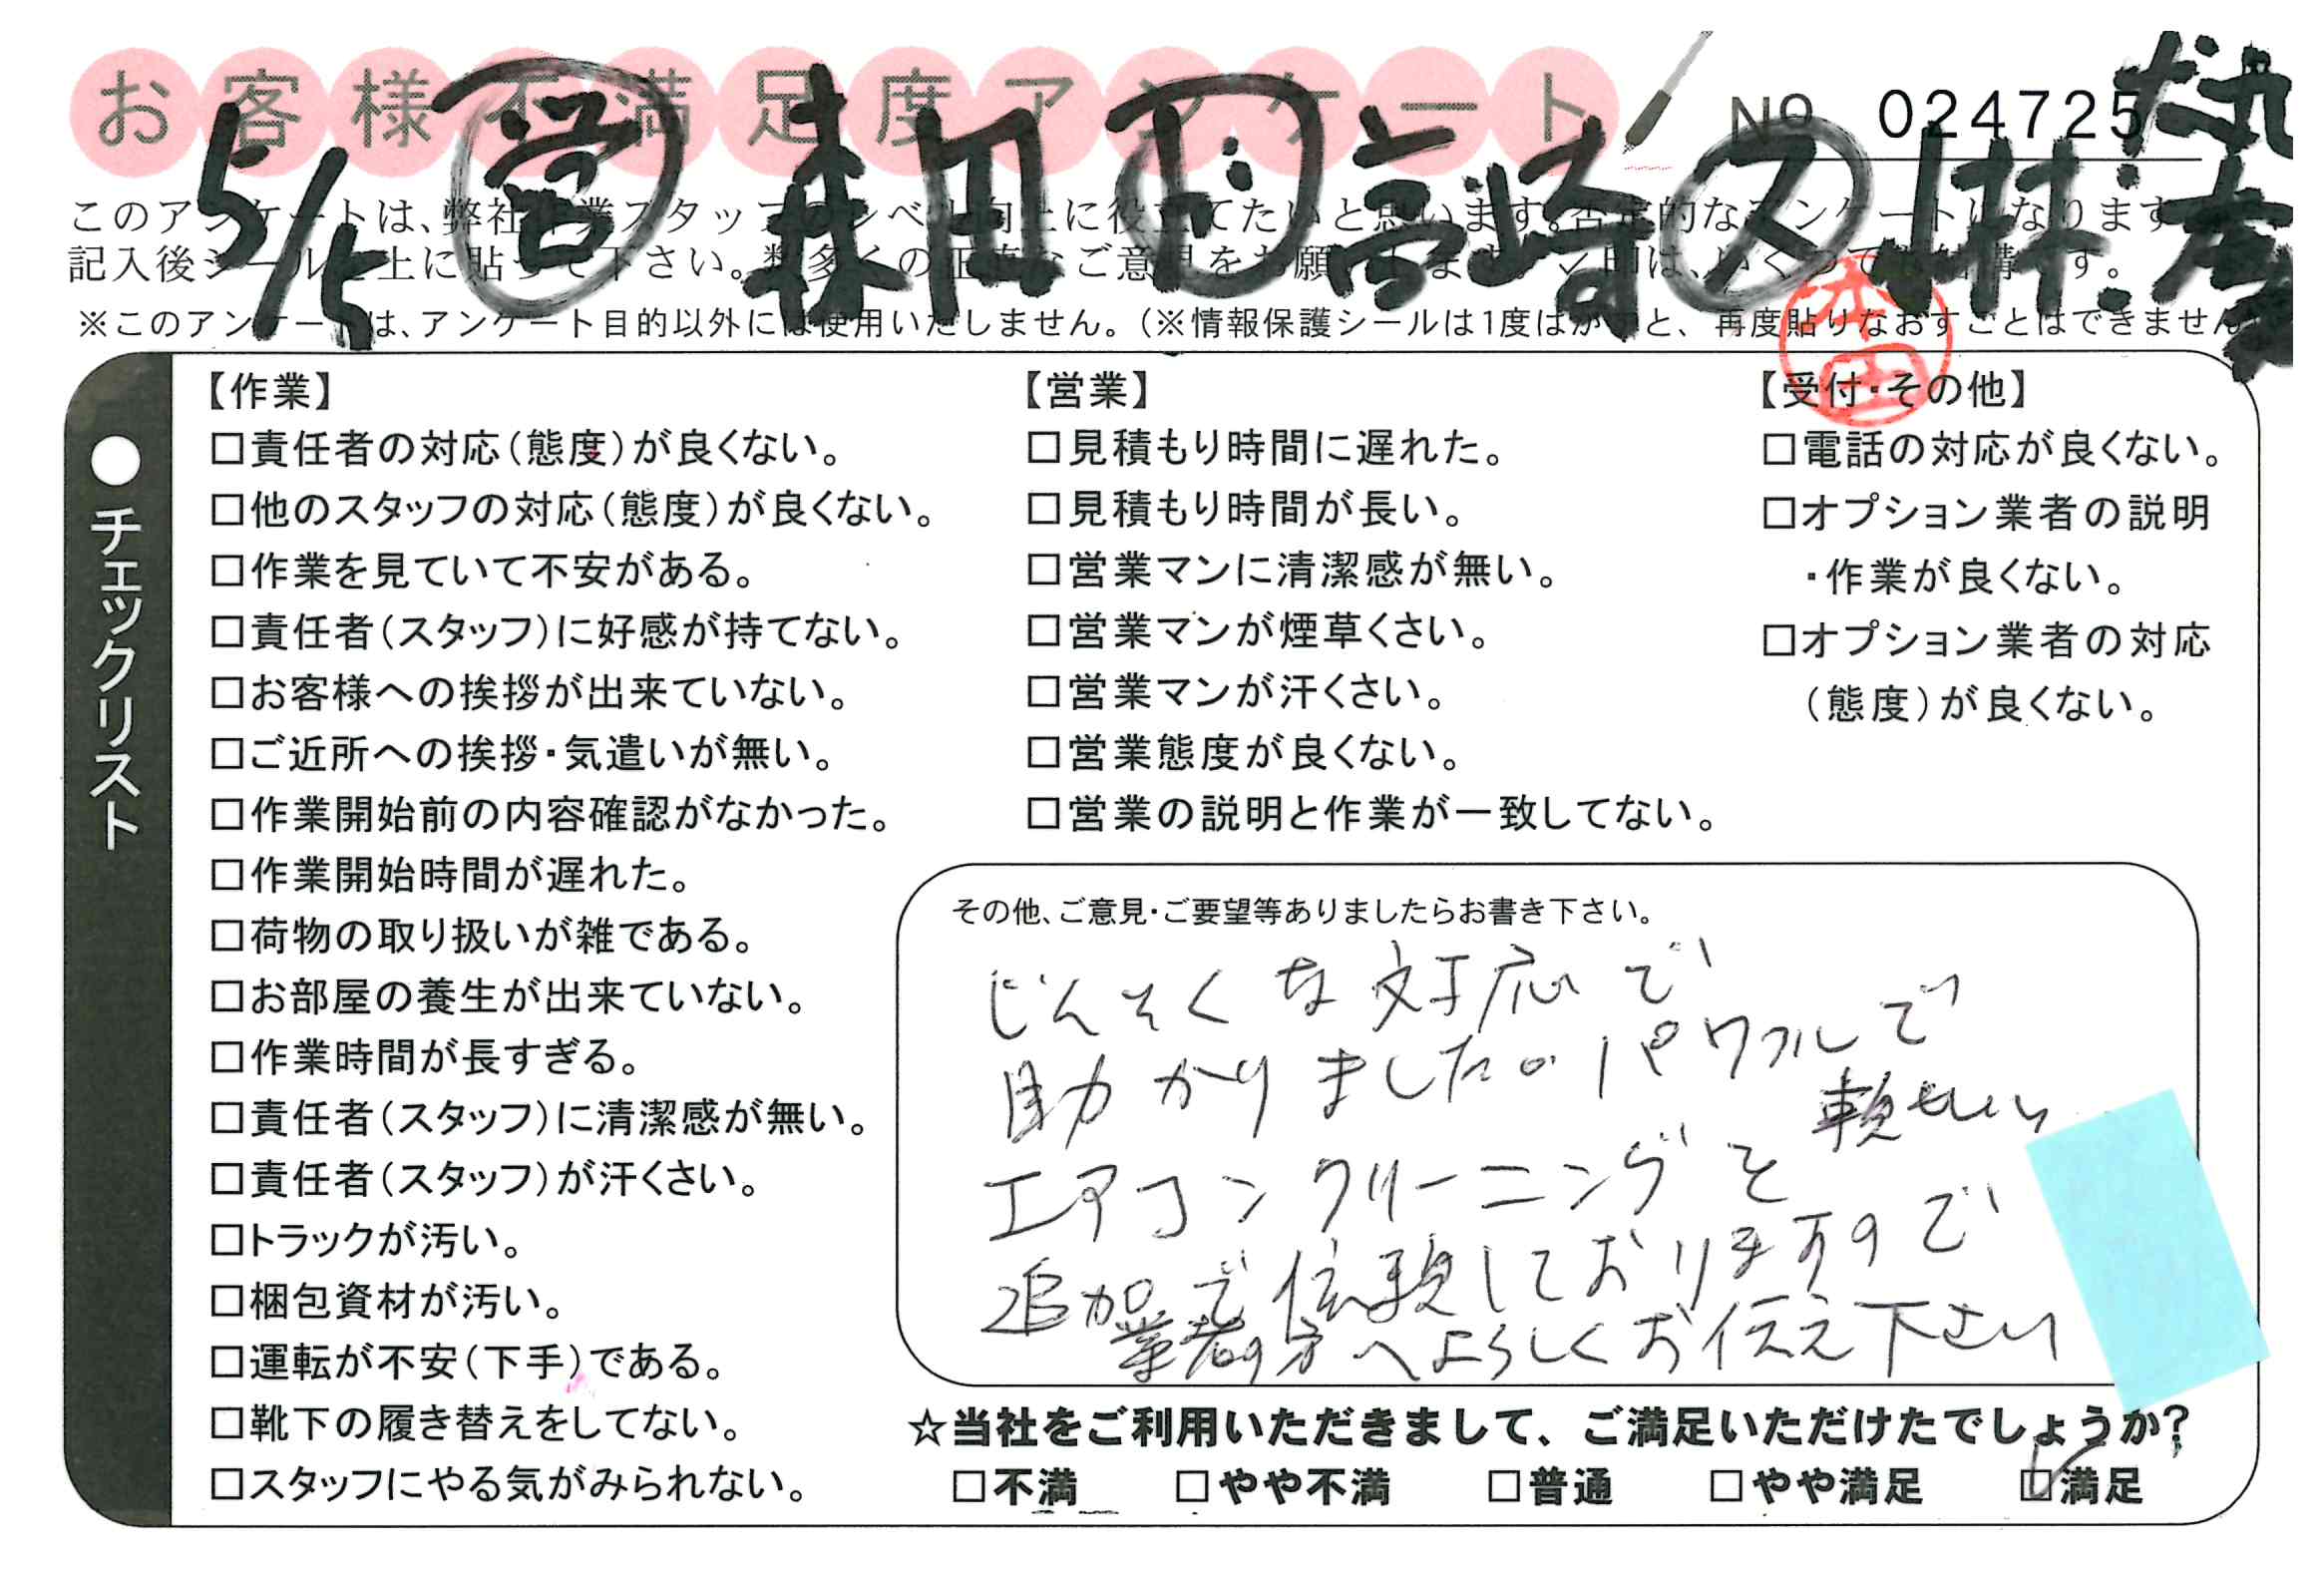 お客様不満足度アンケート
No 024725
5/15 営 森田 T 高崎 ス 小林
このアンケートは、弊社営業スタッフのレベル向上に役立てたいと思います。否定的なアンケートになります
記入後シールを上に貼って下さい。数多くの正直なご意見をお願いします。
※このアンケートは、アンケート目的以外には使用いたしません。(※情報保護シールは1度はがすと、再度貼りなおすことはできません
本田
●チェックリスト
【作業】
□責任者の対応(態度)が良くない。
□他のスタッフの対応(態度)が良くない。
□作業を見ていて不安がある。
□責任者(スタッフ)に好感が持てない。
□お客様への挨拶が出来ていない。
□ご近所への挨拶・気遣いが無い。
□作業開始前の内容確認がなかった。
□作業開始時間が遅れた。
□荷物の取り扱いが雑である。
□お部屋の養生が出来ていない。
□作業時間が長すぎる。
□責任者(スタッフ)に清潔感が無い。
□責任者(スタッフ)が汗くさい。
□トラックが汚い。
□梱包資材が汚い。
□運転が不安(下手)である。
□靴下の履き替えをしてない。
□スタッフにやる気がみられない。
【営業】
□見積もり時間に遅れた。
□見積もり時間が長い。
□営業マンに清潔感が無い。
□営業マンが煙草くさい。
□営業マンが汗くさい。
□営業態度が良くない。
□営業の説明と作業が一致してない。
【受付・その他】
□電話の対応が良くない。
□オプション業者の説明
・作業が良くない。
□オプション業者の対応
(態度)が良くない。
その他、ご意見・ご要望等ありましたらお書き下さい。
じんそくな対応で
助かりました。パワフルで
頼もしい
エアコンクリーニングを
追加で依頼しておりますので
業者の方へよろしくお伝え下さい
☆当社をご利用いただきまして、ご満足いただけたでしょうか?
□不満 □やや不満 □普通 □やや満足 ☑満足